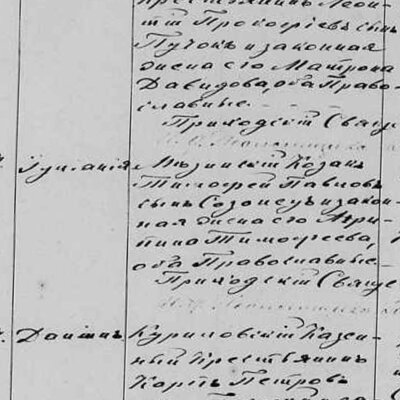 крестьянинъ Леон-
тій Прокофіевъ сынъ
Пучокъ и законная
жена его Матрона
Давидова оба Право-
славные.
Приходскій Свяще
Іуліанія Мѣзинскій Козакъ
Тимофей Павловъ
сынъ Созонецъ и закон-
ная жена его Агри-
пина Тимофеева,
оба Православные.
Приходскій Свяще
Даніилъ Куриловскій Казен-
ный крестьянинъ
Карпъ Петровъ